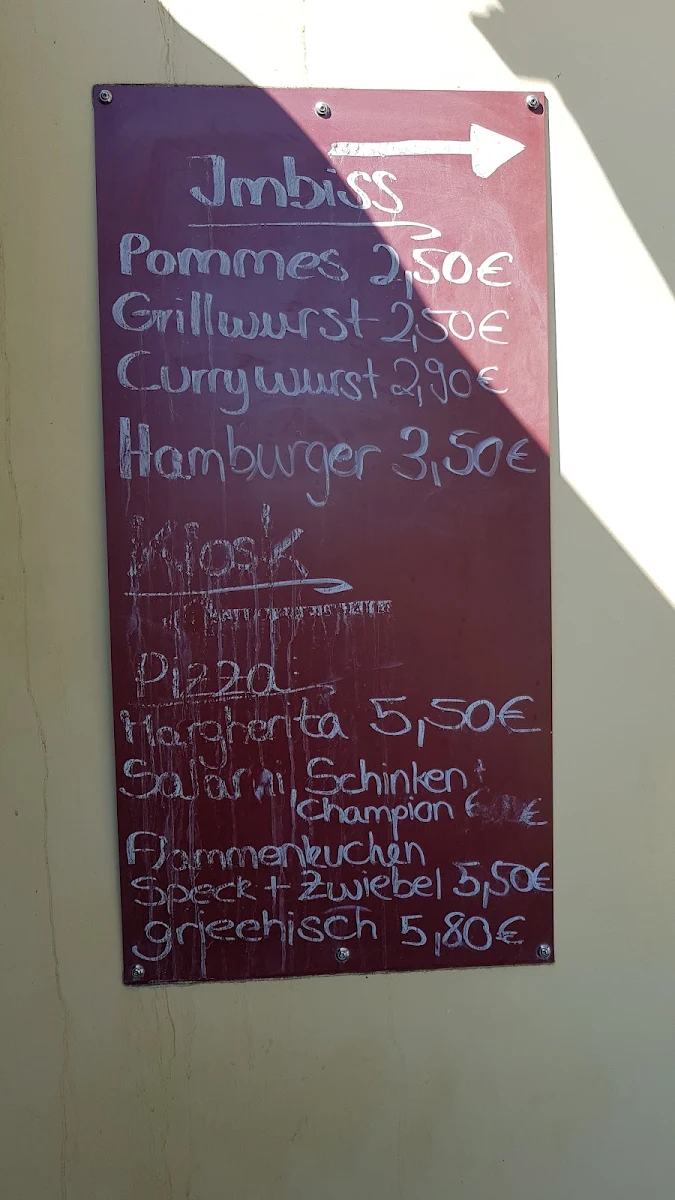 Imbiss
Pommes 2,50€
Grillwurst 2,50€
Currywurst 2,90€
Hamburger 3,50€
Kiosk
Pizza
Margherita 5,50€
Salami, Schinken +
Champion 6 €
Flammenkuchen
Speck + Zwiebel 5,50€
griechisch 5,80€